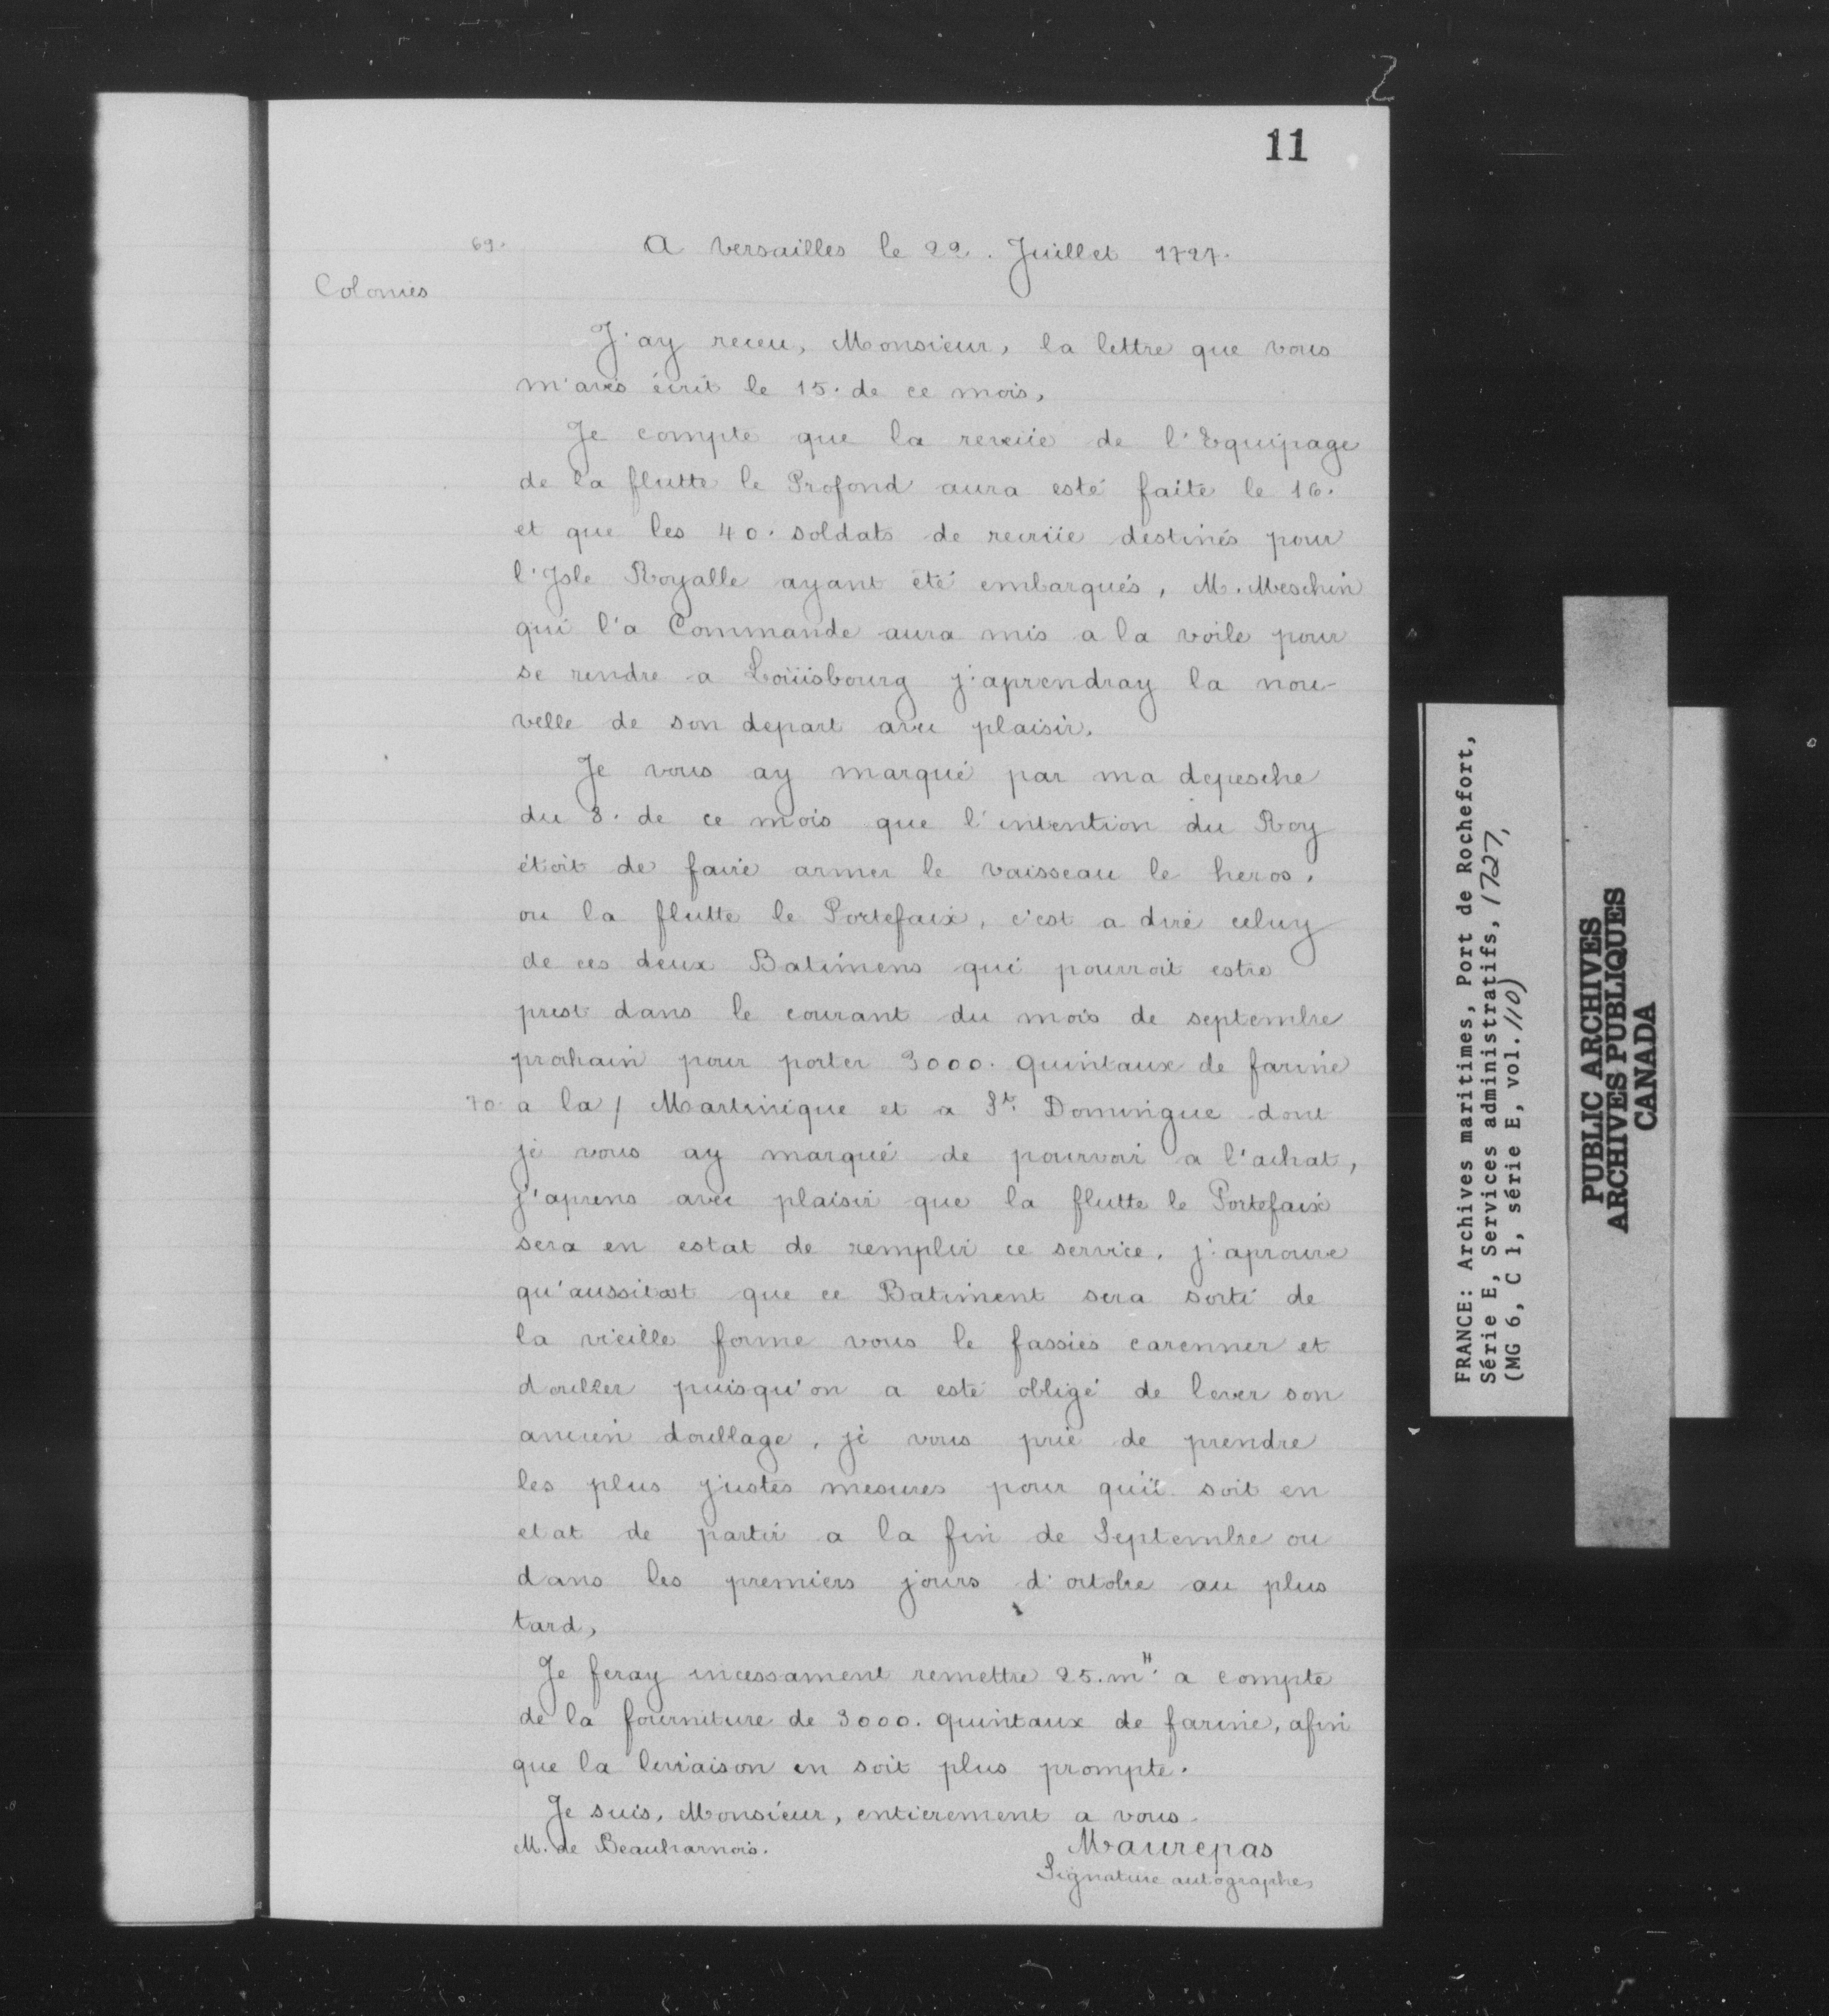 2
11
69. A Versailles le 22. Juillet 1727.
Colonies
J'ay receu, Monsieur, la lettre que vous
m'avés écrit le 15. de ce mois,
Je compte que la reveüe de l'Equipage
de la flutte le Profond aura esté faite le 16.
et que les 40. soldats de recrüe destinés pour
l'Isle Royalle ayant été embarqués, M. Meschin
qui l'a Commande aura mis a la voile pour
se rendre a Loüisbourg j'aprendray la nou-
velle de son depart avec plaisir.
Je vous ay marqué par ma depesche
du 8. de ce mois que l'intention du Roy
étoit de faire armer le vaisseau le heros,
ou la flutte le Portefaix, c'est a dire celuy
de ces deux Batimens qui pourroit estre
prest dans le courant du mois de septembre
prochain pour porter 3000. quintaux de farine
70. a la / Martinique et a St. Domingue dont
je vous ay marqué de pourvoir a l'achat,
j'aprens avec plaisir que la flutte le Portefaix
sera en estat de remplir ce service. j'aprouve
qu'aussitost que ce Batiment sera sorti de
la vieille forme vous le fassiés carenner et
doubler puisqu'on a esté obligé de lever son
ancien doublage, je vous prie de prendre
les plus justes mesures pour qu'il soit en
etat de partir a la fin de Septembre ou
dans les premiers jours d'octobre au plus
tard,
Je feray incessament remettre 25.m# a compte
de la fourniture de 3000. quintaux de farine, afin
que la livraison en soit plus prompte.
Je suis, Monsieur, entierement a vous.
M. de Beauharnois. Maurepas
Signature autographe,
FRANCE: Archives maritimes, Port de Rochefort,
Série E, Services administratifs, 1727,
(MG 6, C 1, série E, vol. 110)
PUBLIC ARCHIVES
ARCHIVES PUBLIQUES
CANADA